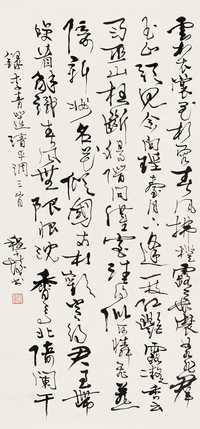 雲想衣裳花想容春風拂檻露華濃若非群
玉山頭見會向瑤臺月下逢一枝紅艷露凝香雲
雨巫山枉斷腸借問漢宮誰得似可憐飛燕
倚新妝名花傾國兩相歡常得君王帶
笑看解釋春風無限恨沈香亭北倚闌干
錄李青蓮清平調三首